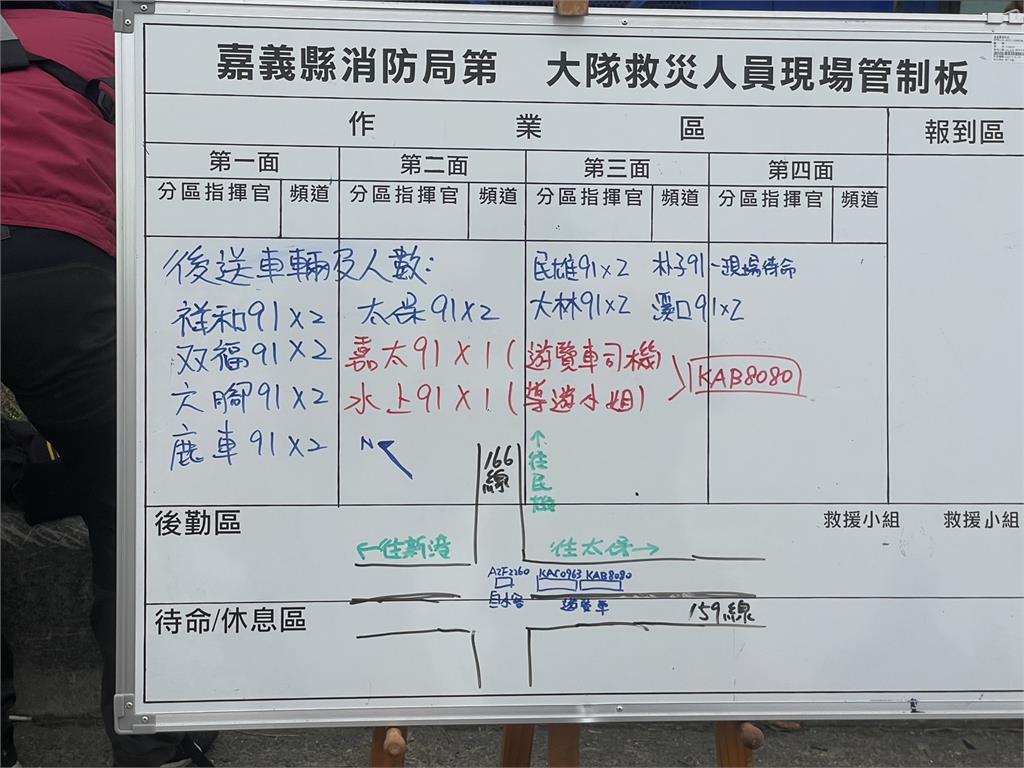 嘉義縣消防局第 大隊救災人員現場管制板
作業區 報到區
第一面 第二面 第三面 第四面
分區指揮官 頻道 分區指揮官 頻道 分區指揮官 頻道 分區指揮官 頻道
後送車輛及人數: 民雄91x2 朴子91-現場待命
祥和91x2 太保91x2 大林91x2 溪口91x2
双福91x2 嘉太91x1(遊覽車司機)
六腳91x2 水上91x1(導遊小姐) KAB8080
鹿車91x2 N
166線
↑往民雄
後勤區 救援小組 救援小組
←往新港 往太保→
AZF2260 KAC0963 KAB8080
自小客 遊覽車
159線
待命/休息區